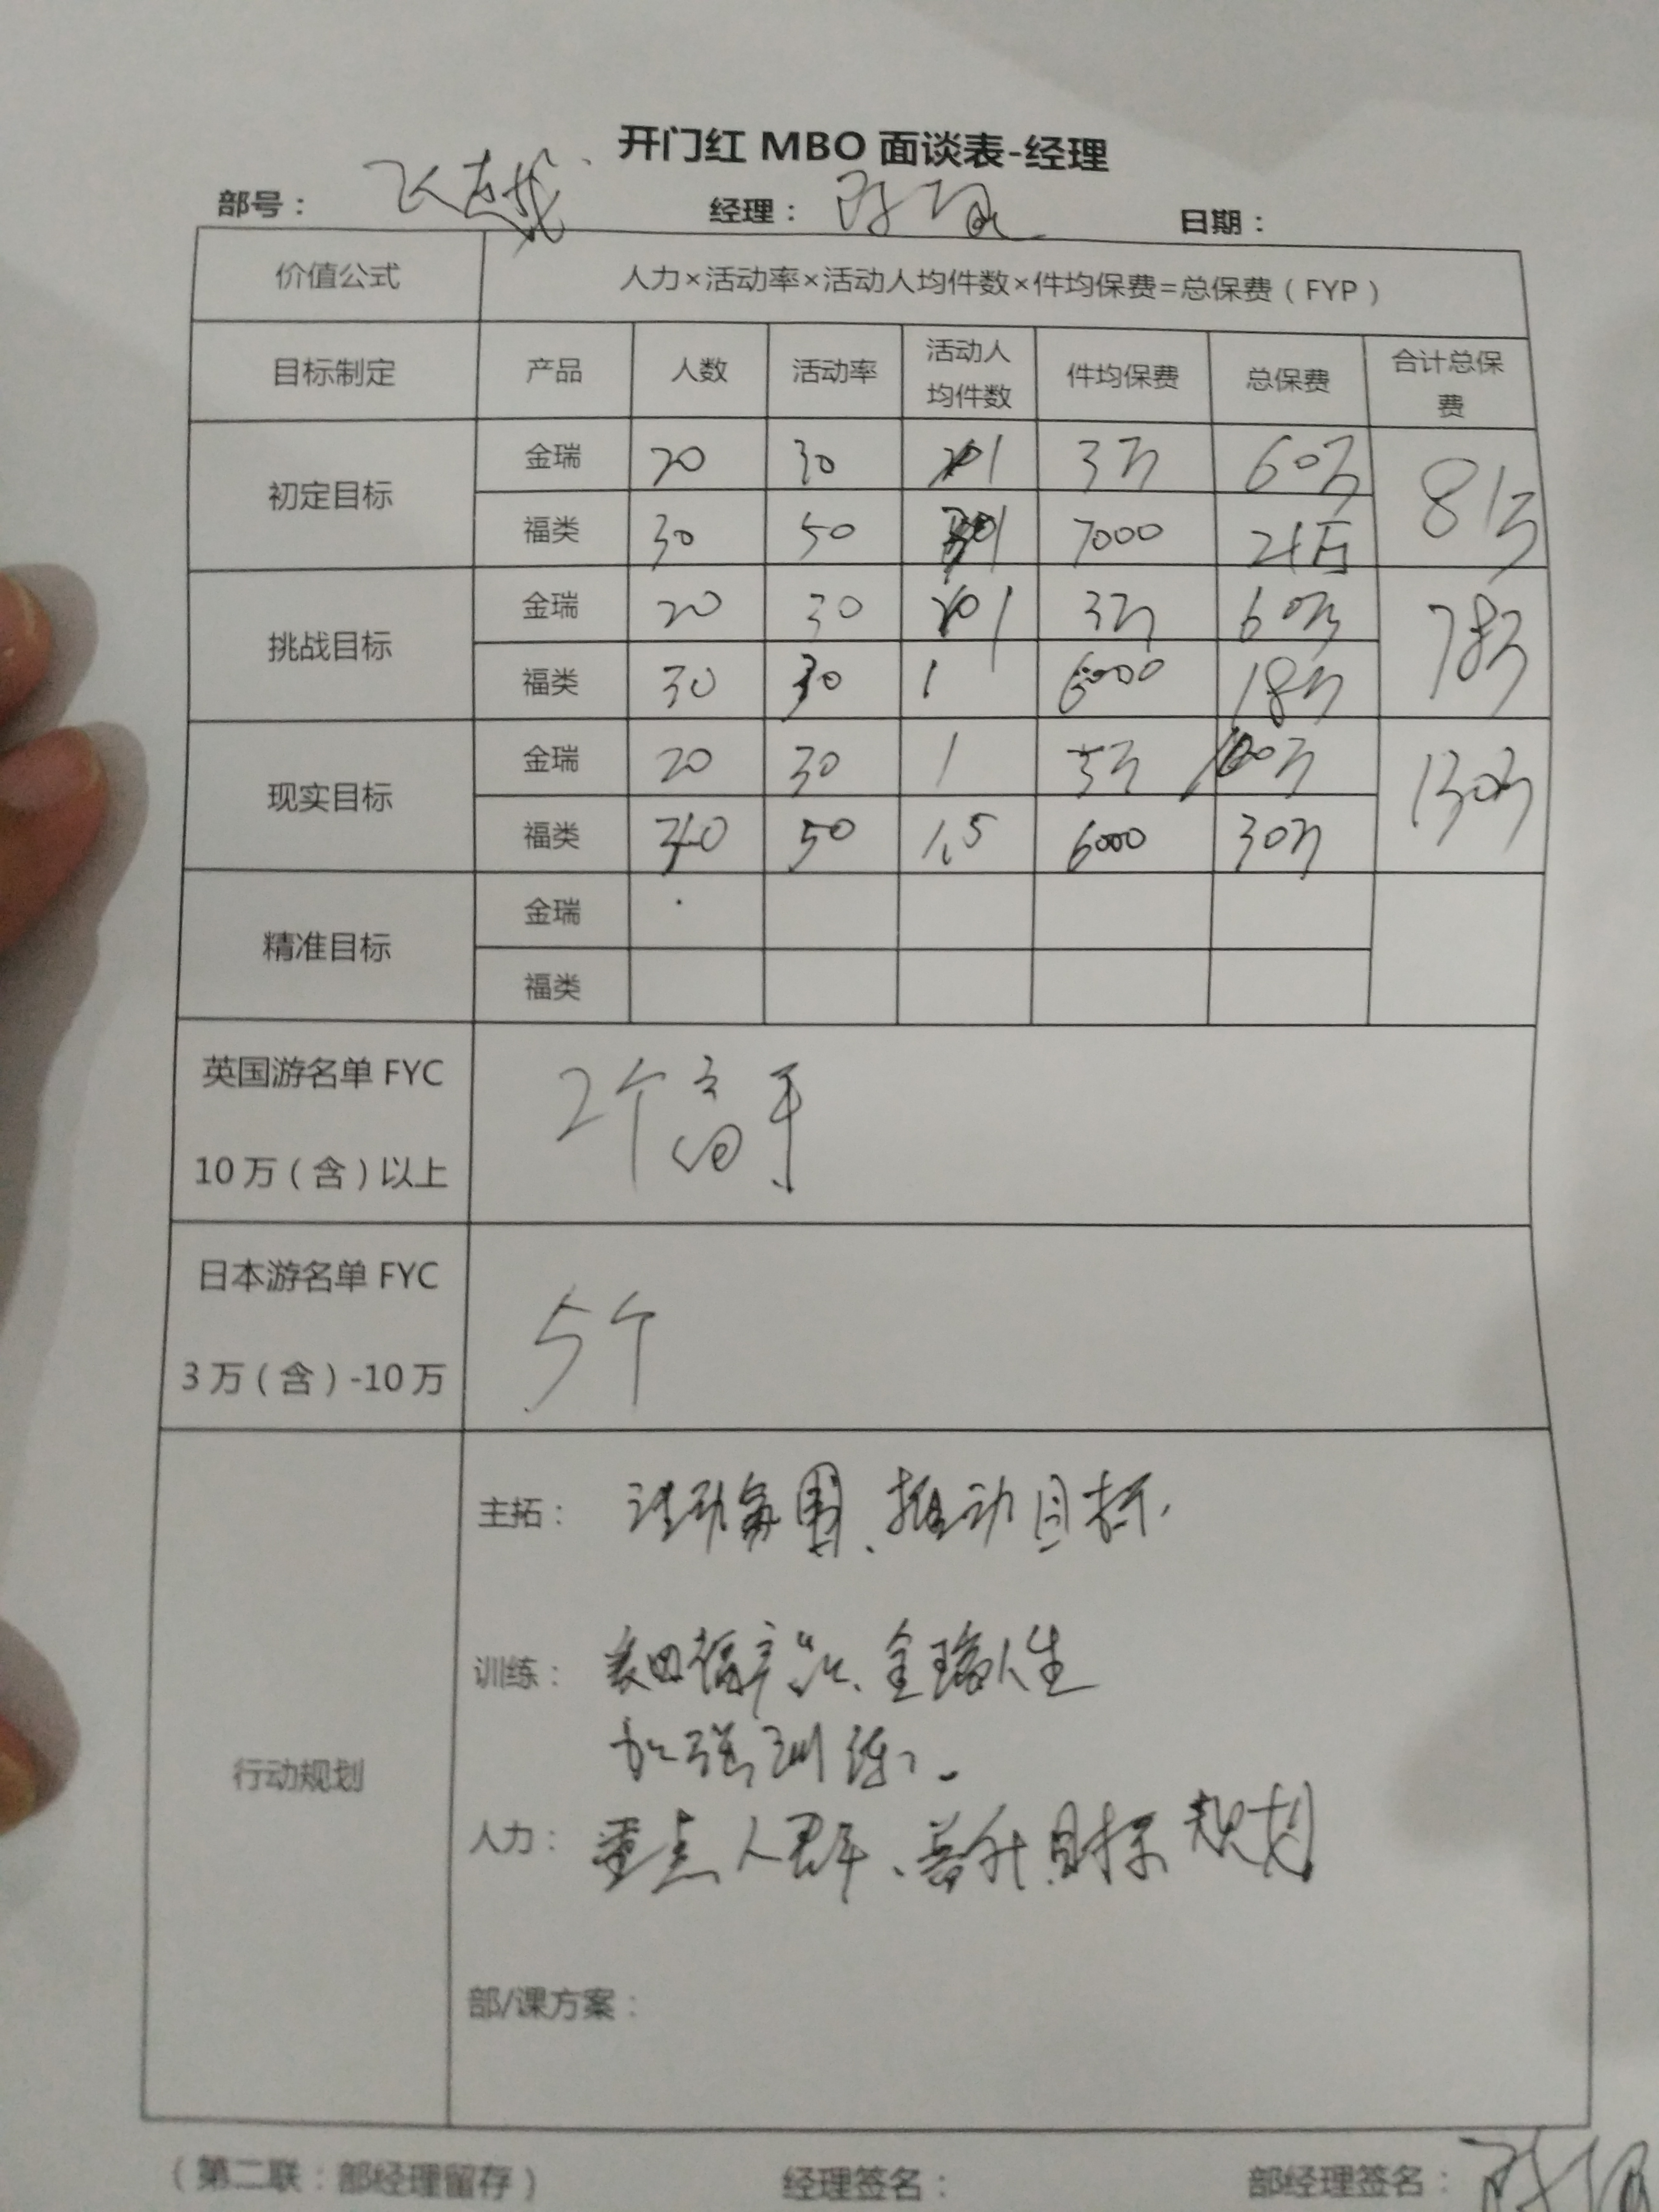 开门红 MBO 面谈表-经理
部号： 飞越 经理： 日期：
价值公式 人力×活动率×活动人均件数×件均保费=总保费（FYP）
目标制定 产品 人数 活动率 活动人均件数 件均保费 总保费 合计总保费
初定目标 金瑞 20 30 1 3万 60万 81万
福类 30 50 1 7000 21万
挑战目标 金瑞 20 30 1 3万 60万 78万
福类 30 30 1 6000 18万
现实目标 金瑞 20 30 1 5万 100万 130万
福类 50 1.5 6000 30万
精准目标 金瑞
福类
英国游名单 FYC
10万（含）以上
2个高手
日本游名单 FYC
3万（含）-10万
5个
行动规划
主拓： 活动氛围、推动目标.
训练： 福产品、金瑞人生
加强训练。
人力： 重点人群、晋升目标规划
部/课方案：
（第二联：部经理留存） 经理签名： 部经理签名：